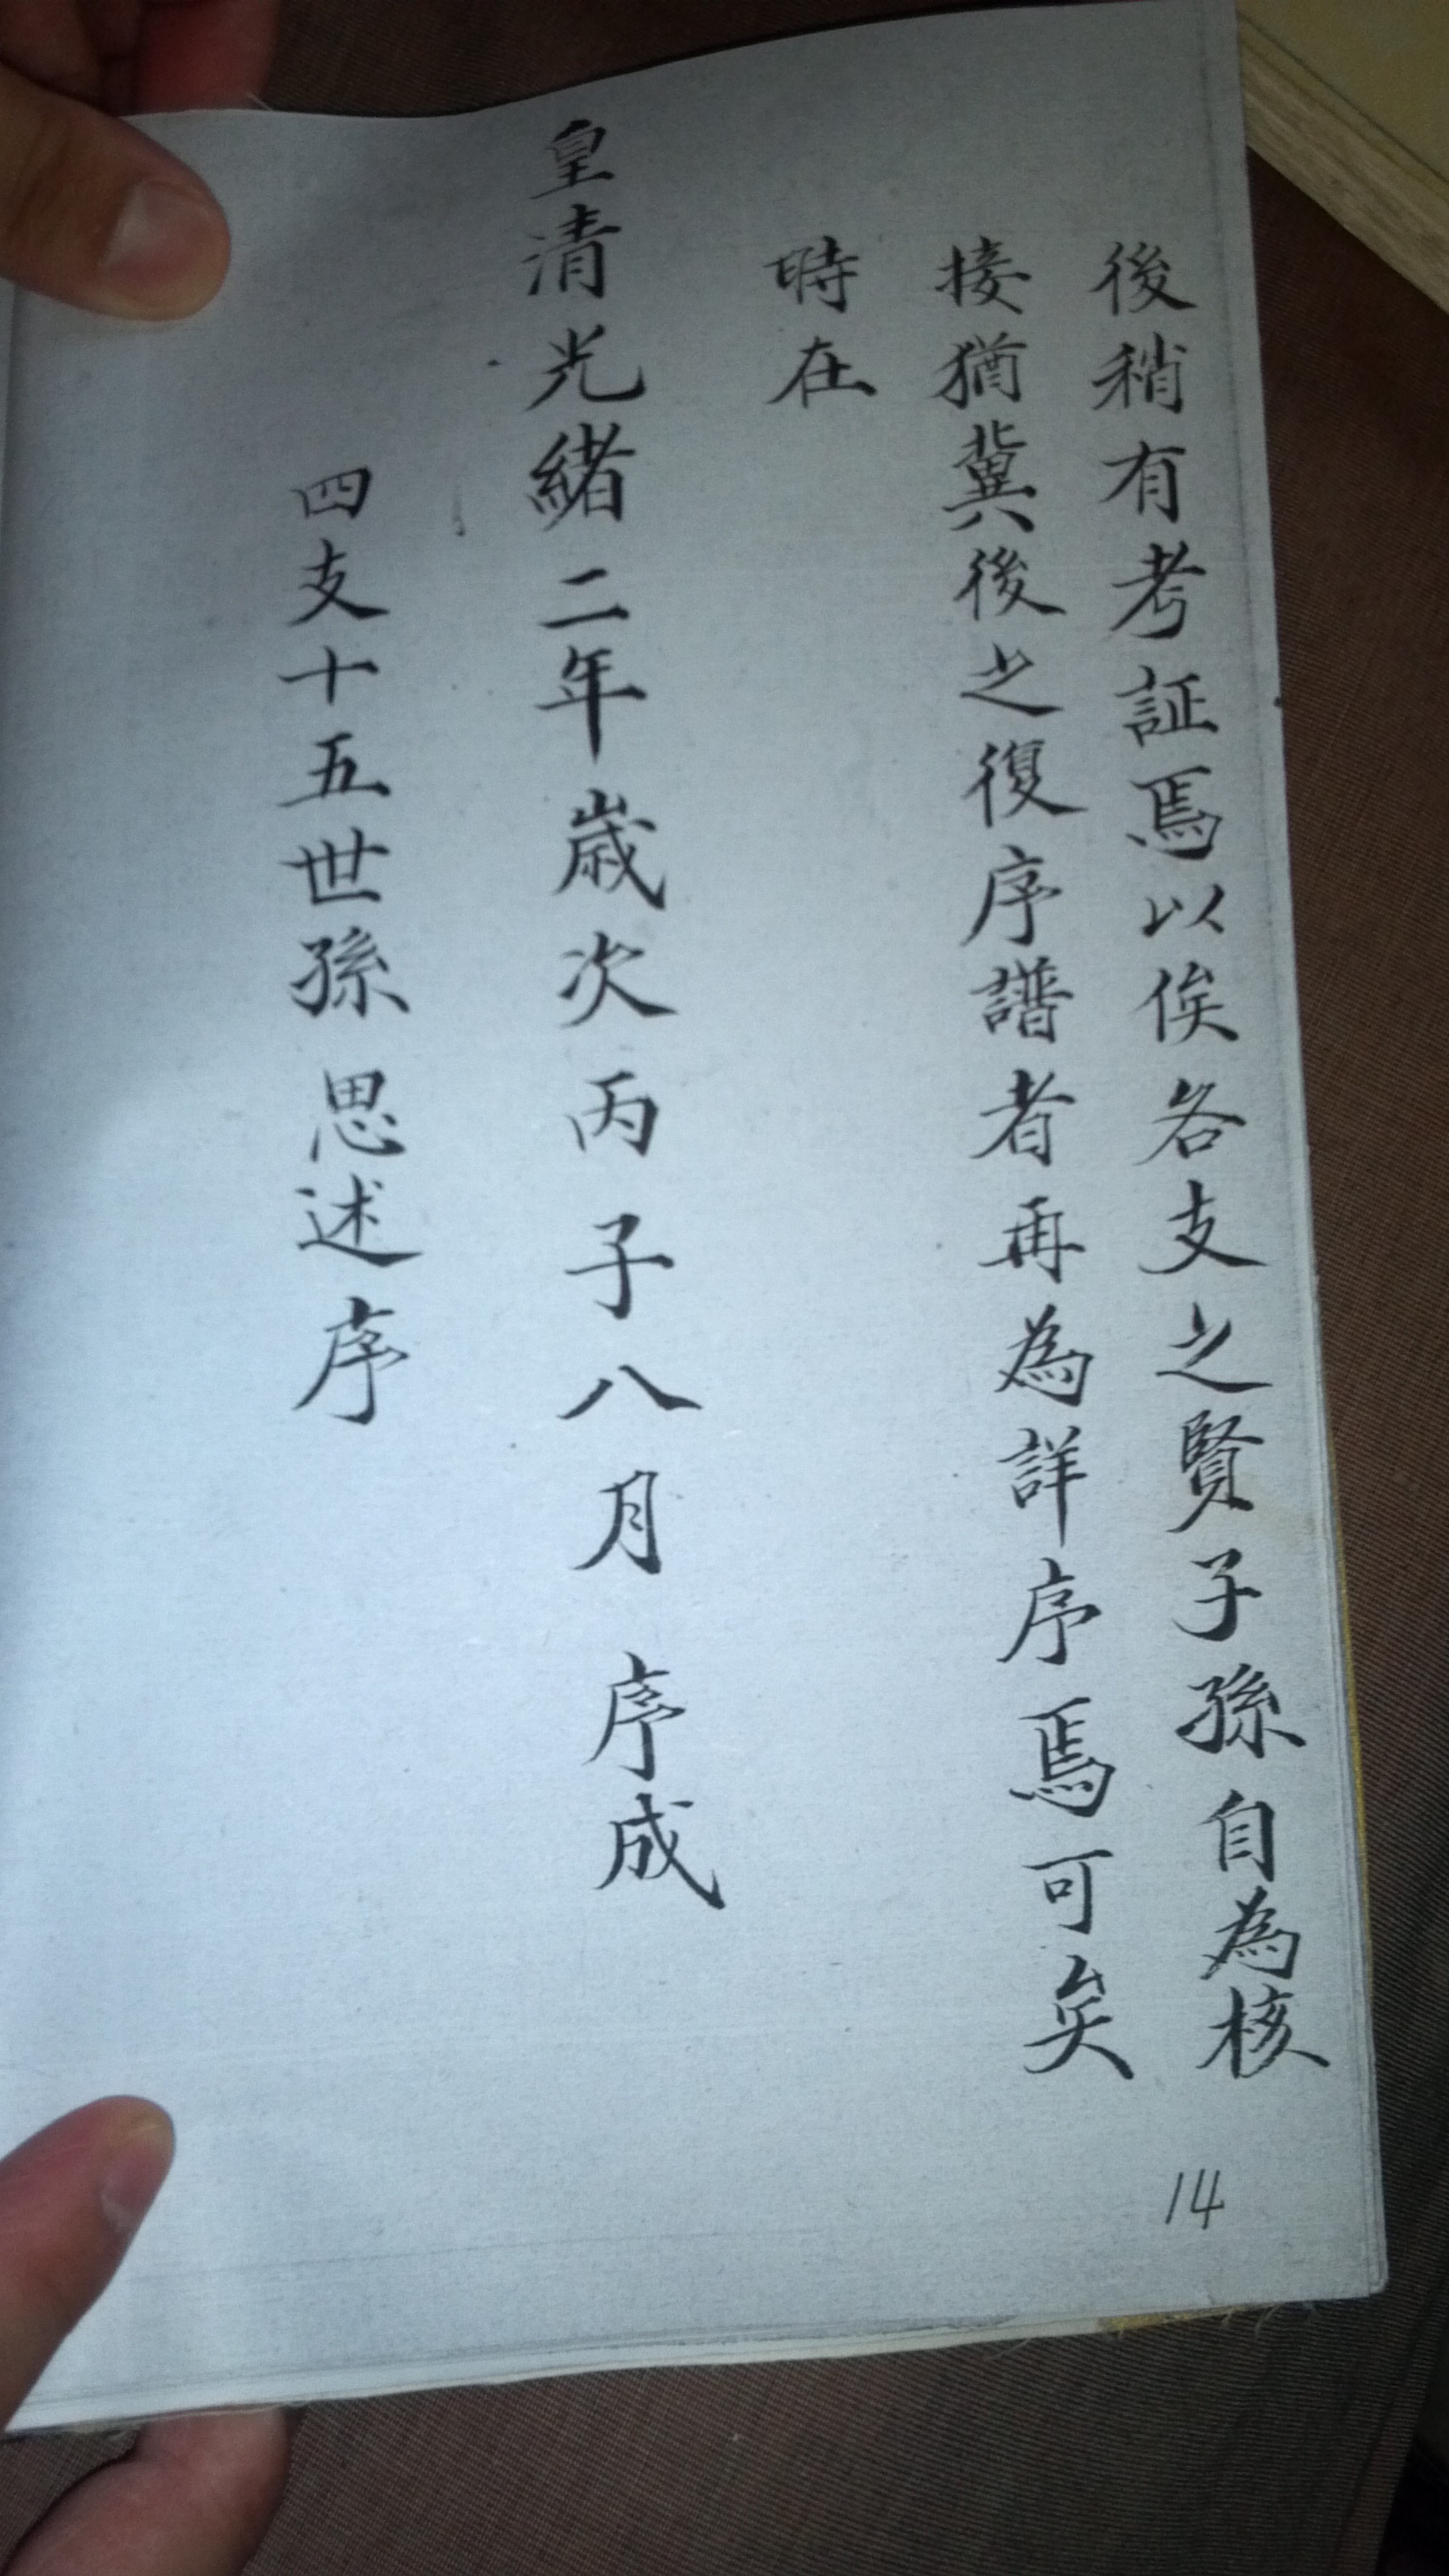 後稍有考証焉以俟各支之賢子孫自為核
接猶冀後之復序譜者再為詳序焉可矣
時在
皇清光緒二年歲次丙子八月 序成
四支十五世孫 思述序
14